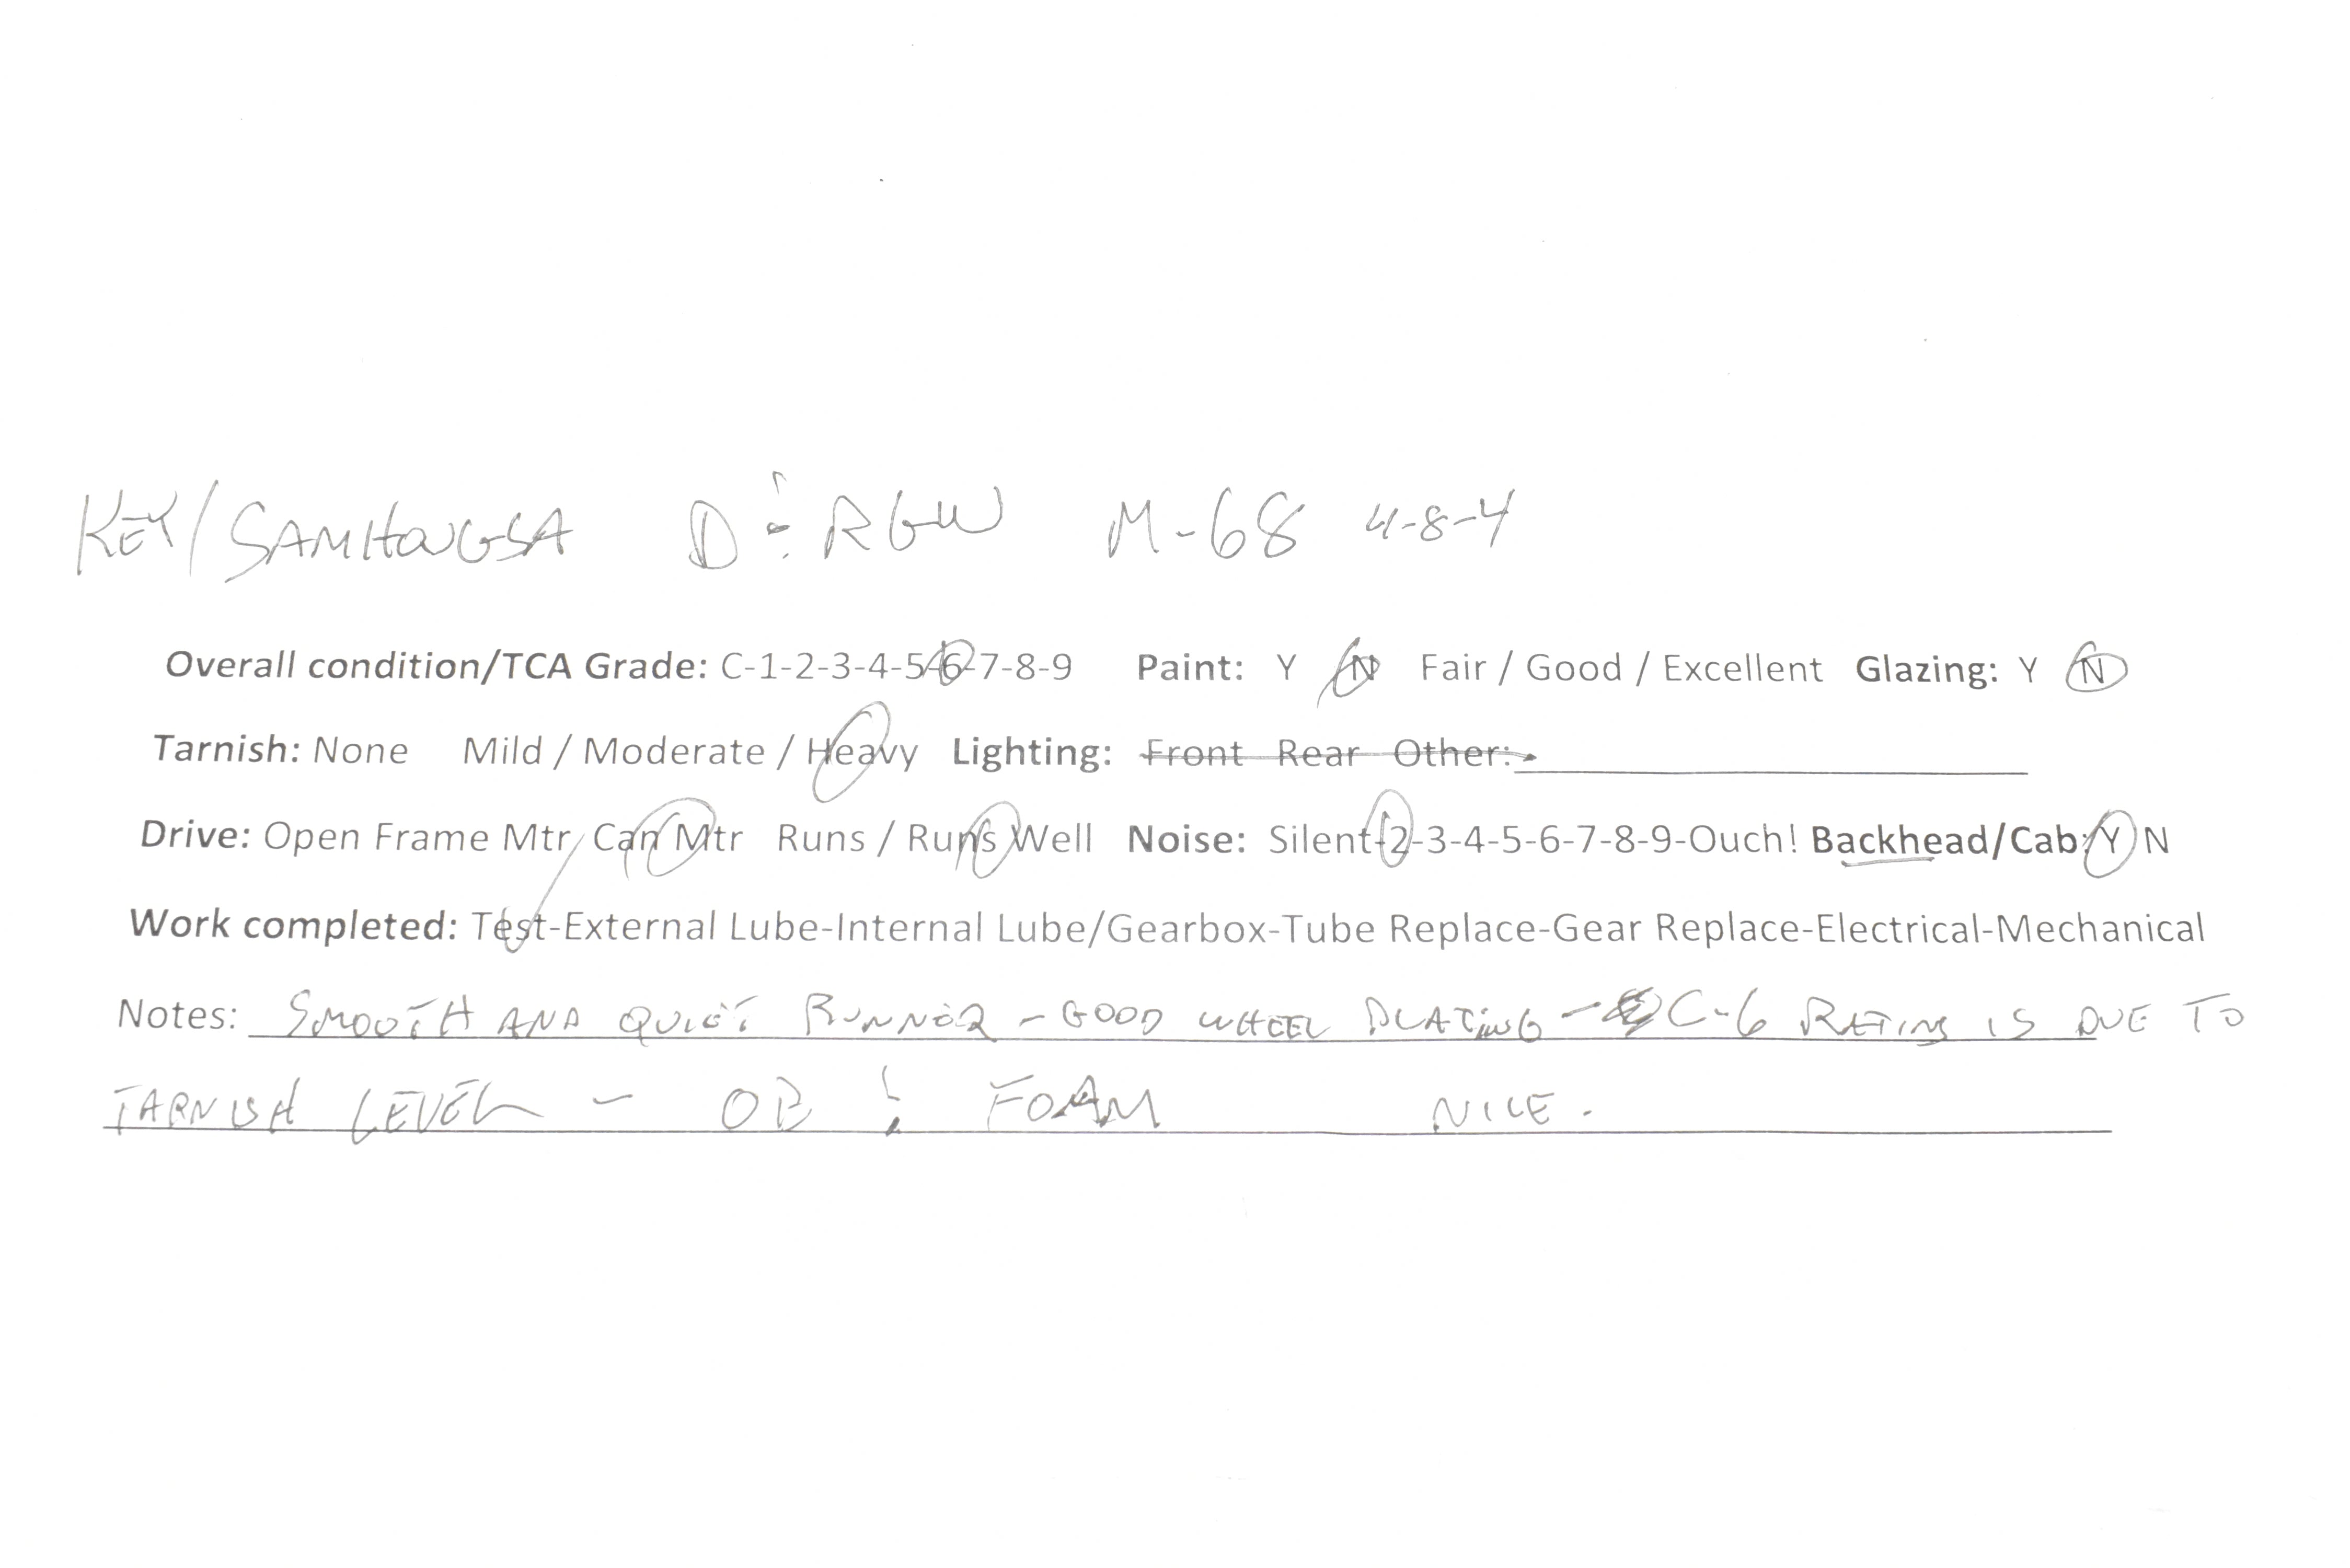 KEY/SAMHONGSA D & RGW M-68 4-8-4
Overall condition/TCA Grade: C-1-2-3-4-5-6-7-8-9 Paint: Y N Fair / Good / Excellent Glazing: Y N
Tarnish: None Mild / Moderate / Heavy Lighting: Front Rear Other:
Drive: Open Frame Mtr/ Can Mtr Runs / Runs Well Noise: Silent-2-3-4-5-6-7-8-9-Ouch! Backhead/Cab: Y N
Work completed: Test-External Lube-Internal Lube/Gearbox-Tube Replace-Gear Replace-Electrical-Mechanical
Notes: SMOOTH AND QUIET RUNNER - GOOD WHEEL PLATING - C-6 RATING IS DUE TO
TARNISH LEVEL - OB & FOAM NICE.